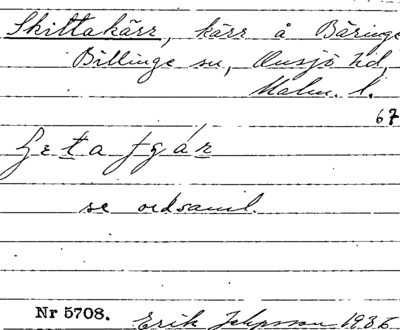 Skittakärr, kärr å Bäringe
Billinge sn, Onsjö hd,
Malm. l.
67
se ordsaml.
Nr 5708.
Erik Jeppsson 1935